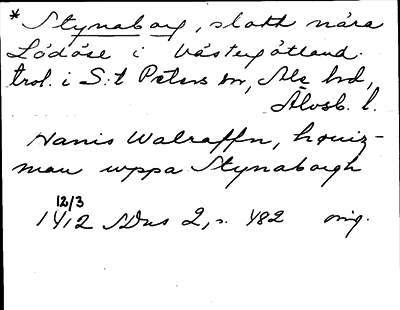 * Stynaborg, slott nära
Lödöse i Västergötland.
trol. i S:t Peters sn, Ale hd,
Älvsb. l.
Hanis Walraffn, høuiz-
man uppa Stynaborgh
12/3
1412 SDns 2, s. 482 orig.